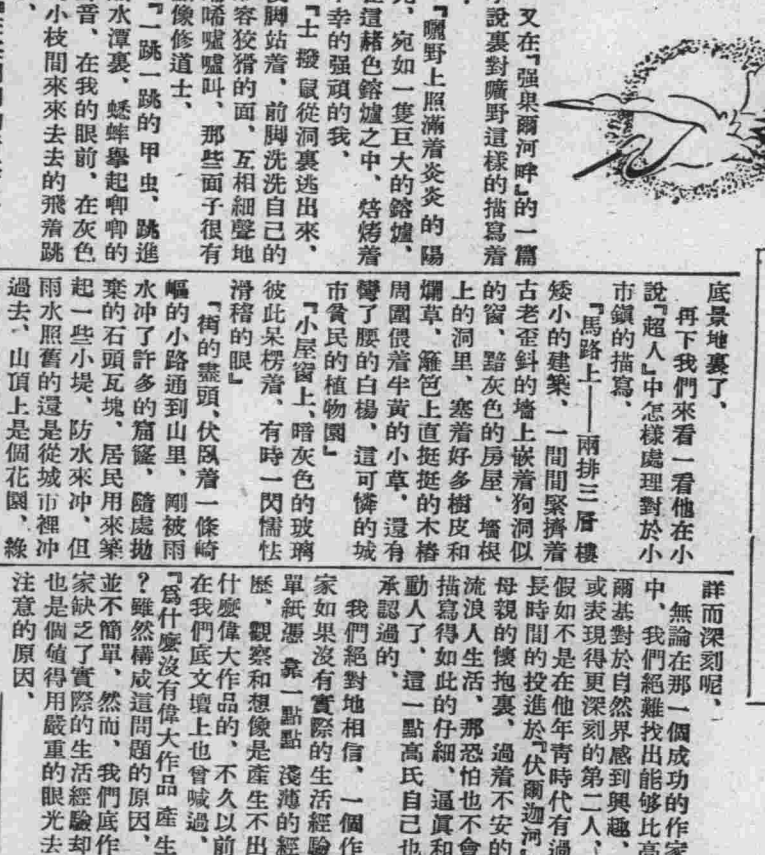 又在『强果爾河畔』的一篇
說裏對曠野這樣的描寫着
『曬野上照滿着炎炎的陽
宛如一隻巨大的鎔爐、
這赭色鎔爐之中、焙烤着
幸的强頑的我、
『士撥鼠從洞裏逃出來、
脚站着、前脚洗洗自己的
容狡猾的面、互相細聲地
唏噓噓叫、那些面子很有
像修道士、
『一跳一跳的甲虫、跳進
水潭裏、蟋蟀舉起唧唧的
音、在我的眼前、在灰色
小枝間來來去去的飛着跳
底景地裏了、
再下我們來看一看他在小
說『超人』中怎樣處理對於小
市鎮的描寫、
『馬路上——兩排三層樓
矮小的建築、一間間緊擠着
古老歪斜的墻上嵌着狗洞似
的窗、黯灰色的房屋、墻根
上的洞里、塞着好多樹皮和
爛草、籬笆上直挺挺的木樁
周圍偎着半黃的小草、還有
彎了腰的白楊、這可憐的城
市貧民的植物園』
『小屋窗上、暗灰色的玻璃
彼此呆楞着、有時一閃懦怯
滑稽的眼』
『街的盡頭、伏臥着一條崎
嶇的小路通到山里、剛被雨
水冲了許多的窟窿、隨處拋
棄的石頭瓦塊、居民用來築
起一些小堤、防水來冲、但
雨水照舊的還是從城市裡冲
過去、山頂上是個花園、綠
詳而深刻呢、
無論在那一個成功的作家
中、我們絕難找出能够比高
爾基對於自然界感到興趣、
或表現得更深刻的第二人、
假如不是在他年靑時代有過
長時間的投進於『伏爾迦河』
母親的懷抱裏、過着不安的
流浪人生活、那恐怕也不會
描寫得如此的仔細、逼眞和
動人了、這一點高氏自己也
承認過的、
我們絕對地相信、一個作
家如果沒有實際的生活經驗
單紙憑靠一點點淺薄的經
歷、觀察和想像是產生不出
什麽偉大作品的、不久以前
在我們底文壇上也曾喊過、
『爲什麽沒有偉大作品產生
？雖然構成這問題的原因、
並不簡單、然而、我們底作
家缺乏了實際的生活經驗却
也是個値得用嚴重的眼光去
注意的原因、